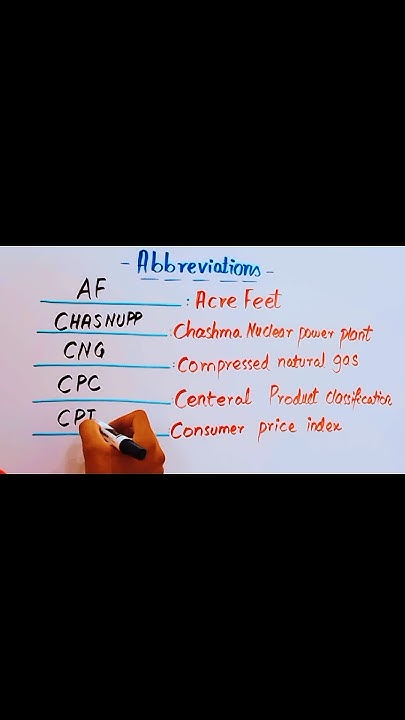 - Abbreviations -
AF : Acre Feet
CHASNUPP : Chashma Nuclear power plant
CNG : Compressed natural gas
CPC : Centeral Product classification
CPI Consumer price index